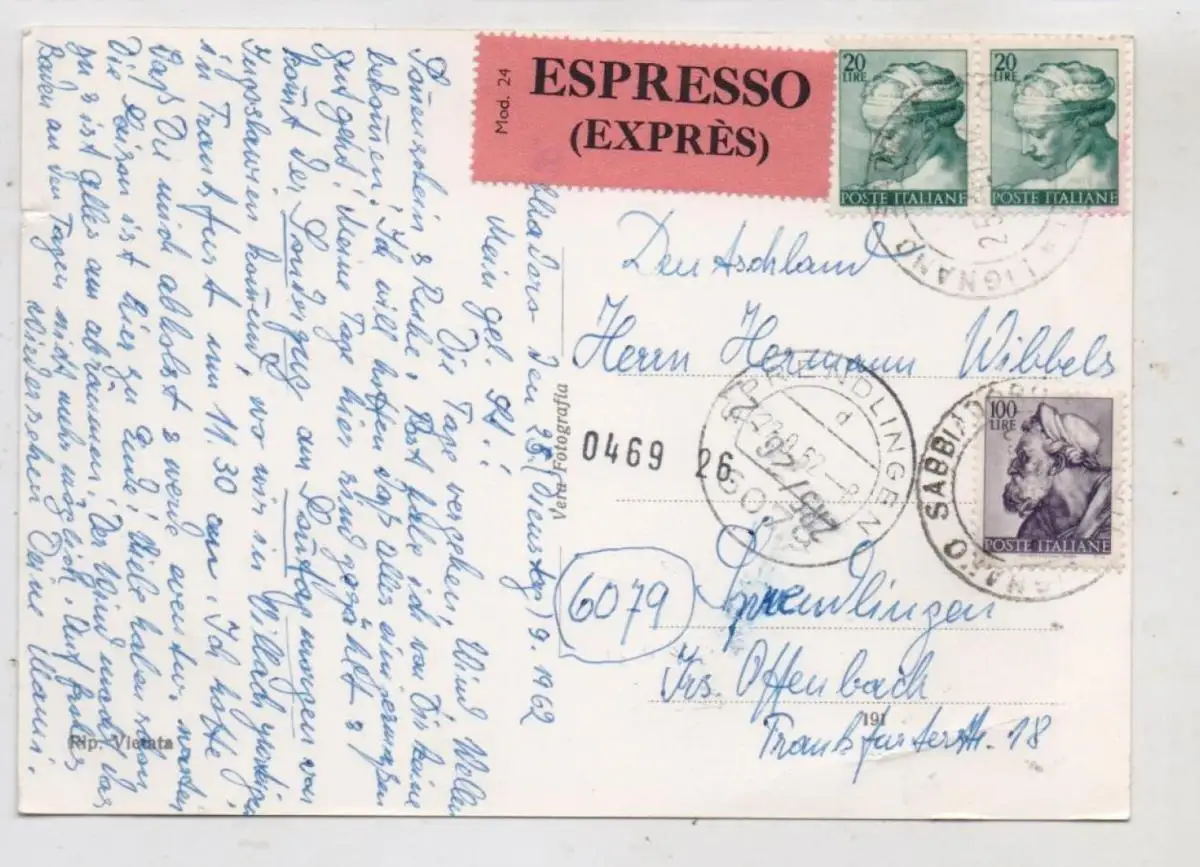 Mod. 24
ESPRESSO
(EXPRÈS)
20
LIRE
POSTE ITALIANE
20
LIRE
POSTE ITALIANE
LIGNANO
Deutschland
Herrn Hermann Wibbels
100
LIRE
POSTE ITALIANE
LIGNANO SABBIADORO
0469 26
SPRENDLINGEN
6079
6079
Sprendlingen
Krs. Offenbach
191
Frankfurterstr. 18
Vera Fotografia
Rip. Vietata
Den 25 (Dienstag) 9. 1962
Mein gel.
Die Tage vergehen, Wind Wellen
Sonnenschein & Ruhe, Post habe ich von Dir keine
bekommen. Ich will hoffen daß alles einigermaßen
gut geht! Meine Tage hier sind gezählt &
kommt der Sonderzug am morgen von
Jugoslawien kommend, wo wir in Villach
in Frankfurt um 11.30 an. Ich hoffe
Daß Du mich abholst & werde eventu. warten
Die Saison ist hier zu Ende! Viele haben schon
zu & ist alles am abräumen. Der Wind macht das
Baden an den Tagen nicht mehr möglich. Auf frohes
Wiedersehen Deine Mami.